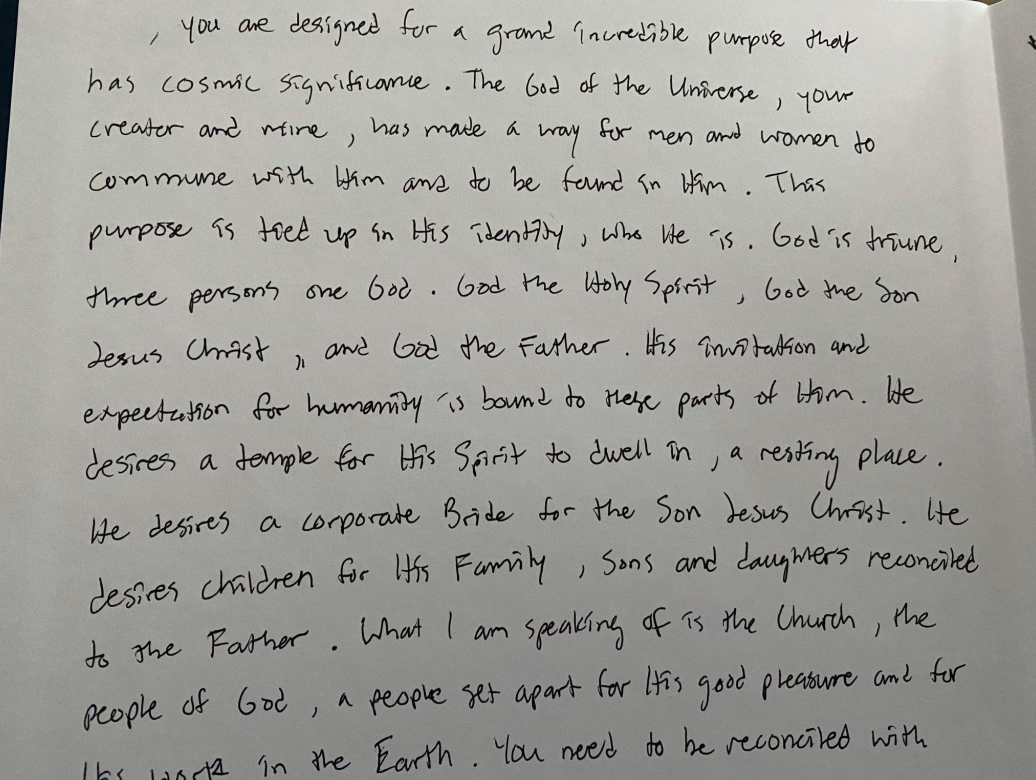 , you are designed for a grand incredible purpose that
has cosmic significance. The God of the Universe, your
creator and mine, has made a way for men and women to
commune with Him and to be found in Him. This
purpose is tied up in His identity, who He is. God is triune,
three persons one God. God the Holy Spirit, God the Son
Jesus Christ, and God the Father. His invitation and
expectation for humanity is bound to these parts of Him. He
desires a temple for His Spirit to dwell in, a resting place.
He desires a corporate Bride for the Son Jesus Christ. He
desires children for His Family, sons and daughters reconciled
to the Father. What I am speaking of is the Church, the
people of God, a people set apart for His good pleasure and for
in the Earth. You need to be reconciled with